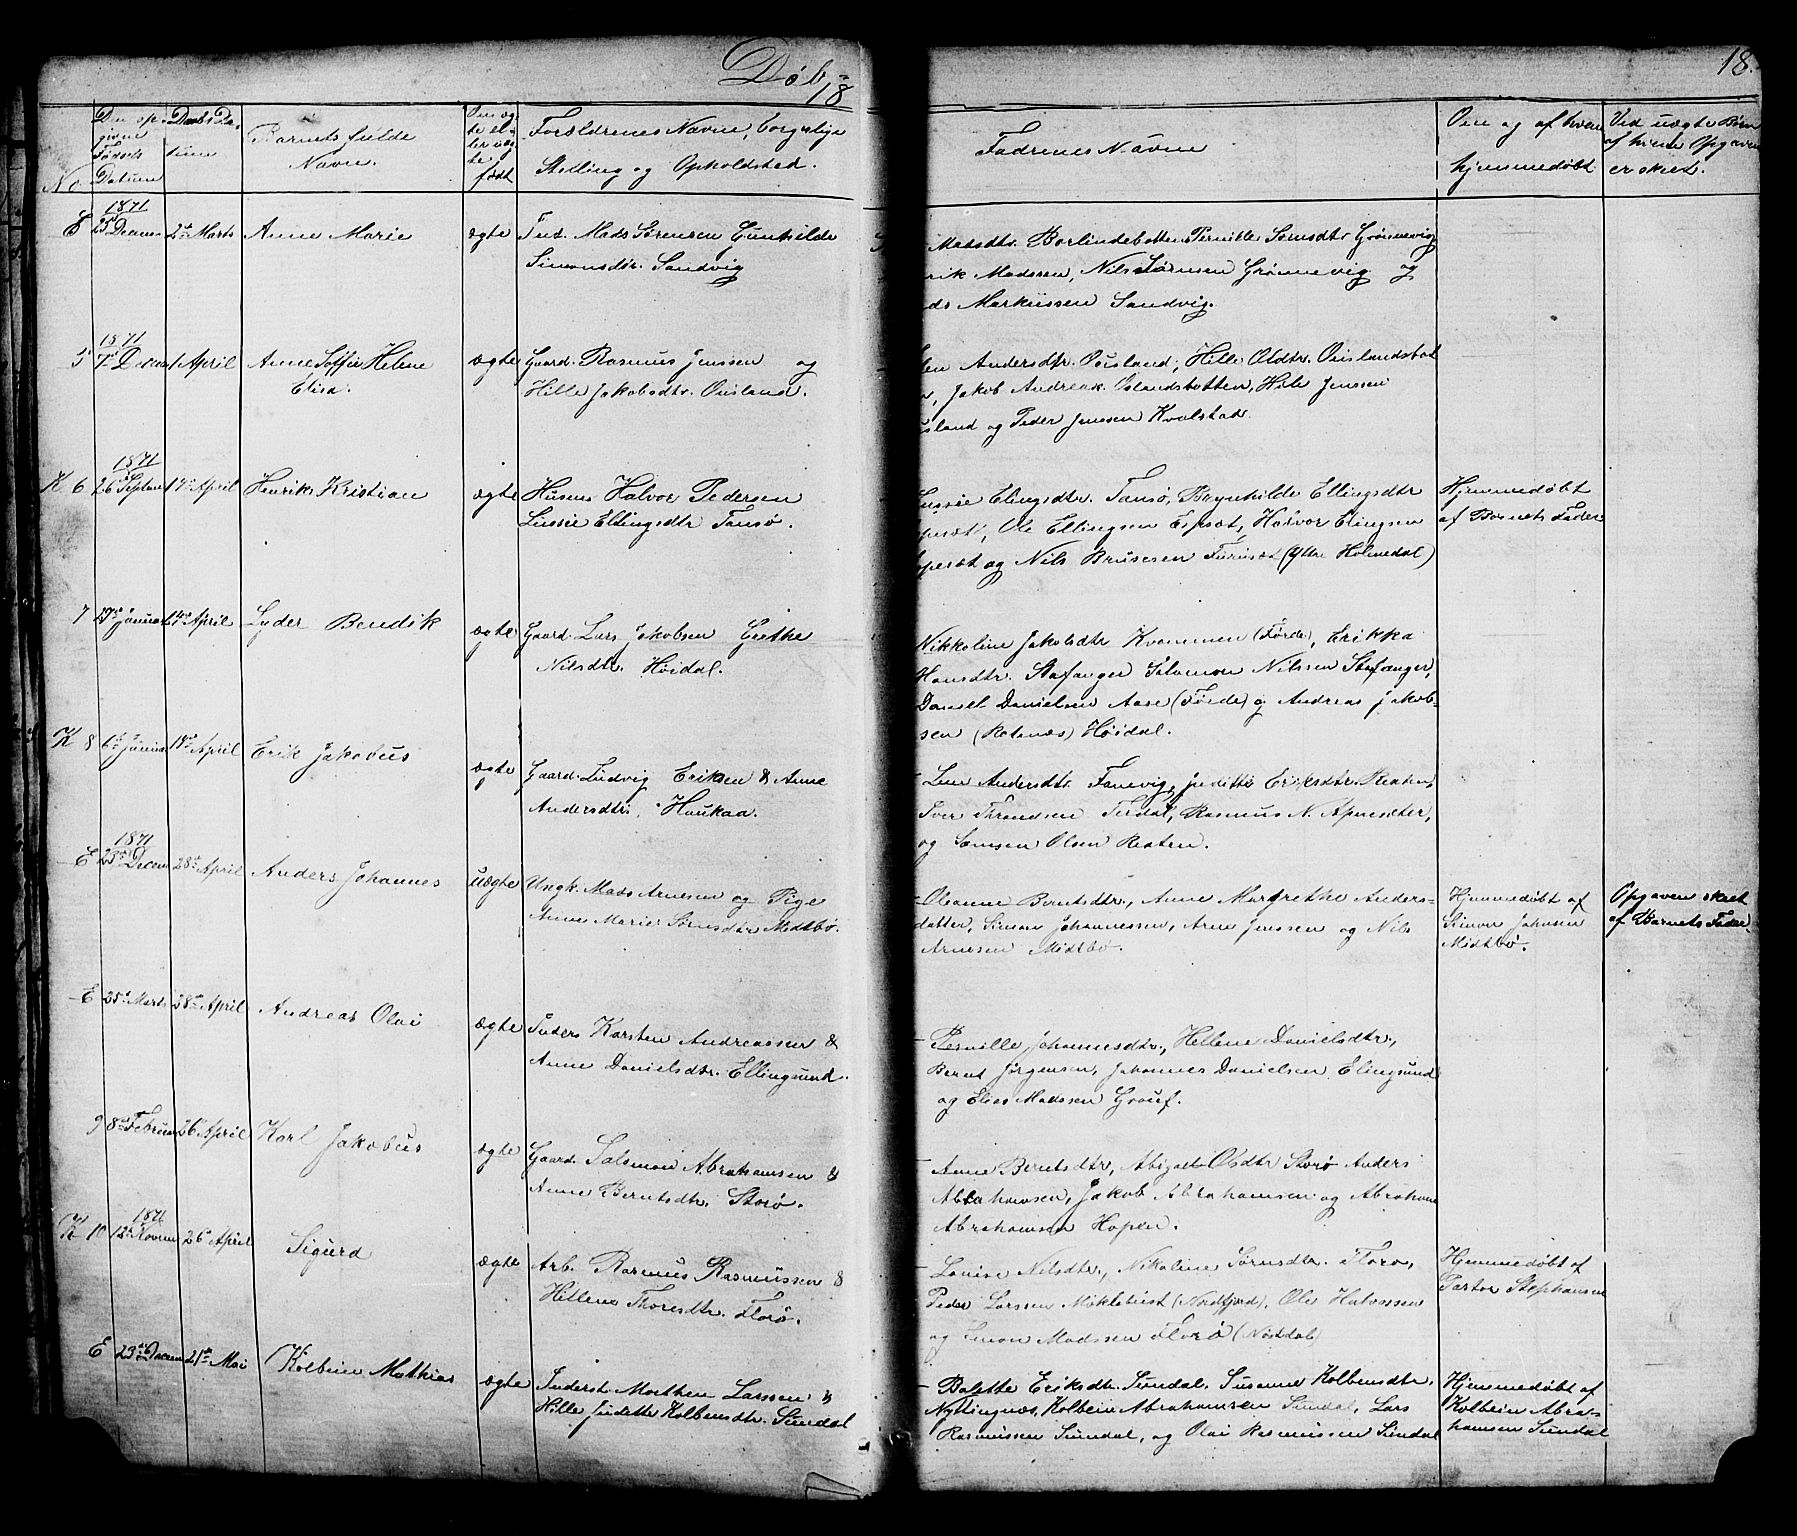 Døb
18
18.
No.
Den op-
givne
Fødsels
Datum
Daabs Da-
tum
Barnets fulde
Navn.
Om æg-
te el-
ler uæg-
te
født
Forældrenes Navne, borgerlige
Stilling og Opholdsted.
Fadrenes Navne
Om og af hvem
hjemmedøbt
Ved uægte Børn
af hvem Opgaven
er skeet.
1871
E 25 Decem 2den Marts Anne Marie ægte Ind. Mads Sørensen Gunhilde
Simonsdtr. Sandvig
Matsdtr. Borlindebotten Pernille Sørnsdtr Grønnevig
rik Madssen, Nils Sørnsen Grønnevig og
ds Markussen Sandvig.
1871
5 7de Decem 1 April Anne Soffie Helene ægte Gaard. Rasmus Jenssen og
Elisa. Hille Jakobsdtr. Ousland.
Andersdtr. Ousland, Hille Olsdtr. Ouslandsbot
Jakob Andreas. Oslandsbotten, Hile Jenssen
sland og Peder Jenssen Kvalstad.
1871
K 6 26de Septem 1ste April Henrik Kristian ægte Husm Halvor Pedersen
Lussie Ellingsdtr Tansø.
Lussie Elingsdtr. Tansø, Brynhilde Ellingsdtr
peset, Ole Ellingsen Espeset, Halvor Elingsen
peset og Nils Brusesen Furuset (Yttre Holmedal)
Hjemmedøbt
af Barnets Fader
7 Januar April Lyder Bendik ægte Gaard. Lars Jakobsen Giethe
Nilsdtr. Høidal.
Nikkoline Jakobsdtr Kvammen (Førde), Erikka
Hansdtr. Stafanger Salomon Nilssen Stafanger,
Daniel Danielsen Aase (Førde) og Andreas Jakob-
sen (Rotanæs) Høidal.
K 8 6te Januar 14de April Erik Jakobus ægte Gaard. Ludvig Eriksen & Anne
Andersdtr. Houkaa.
Line Andersdtr. Fanevig, Juditte Eriksdtr. Reaten,
Iver Throndsen Terdal, Rasmus N. Apneseter,
og Samsen Olsen Reaten.
1871
E 23de Decem 28de April Anders Johannes uægte Ungk. Mads Arnesen og Pige
Anne Marie Sørnsdtr Midtbø.
Oleanne Berntsdtr., Anne Margrethe Anders-
datter, Simon Johannessen, Arne Jenssen og Nils
Arnesen Midtbø.
Hjemmedøbt af
Simon Johnsen
Midtbø.
Opgaven skeet
af Barnets Fader
E 25de Marts 28de April Andreas Olai ægte Inders Karsten Andreassen &
Anne Danielsdtr. Ellingsund.
Pernille Johannesdtr., Hellene Danielsdtr.,
Bernt Jørgensen, Johannes Danielsen Elingsund
og Elias Madssen Grouf.
9 8de Februar 26de April Karl Jakobus ægte Gaard. Salomon Abrahamsen &
Anne Berntsdtr. Storø.
Anne Berntsdtr, Abigael Olsdtr Storø Anders
Abrahamsen, Jakob Abrahamsen og Abraham
Abrahamsen Hopen.
1871
K 10 12te Novem 26de April Sigurd ægte Arb. Rasmus Rasmussen &
Hellene Thoresdtr. Florø.
Lovise Nilsdtr., Nikoline Sørnsdtr. Florø,
Peder Larssen Myklebust (Nordfjord), Ole Halvorssen
og Simon Madssen Florø (Nøstdal)
Hjemmedøbt af
Pastor Stephansen
E 23de Decem 21de Mai Kolbein Mathias ægte Inderst Morthen Larssen &
Hille Judette Kolbensdtr. Sundal
Bolette Eriksdtr. Sundal, Susanne Kolbensdtr.
Nyttingnæs, Kolbein Abrahamsen Sundal, Lars
Rasmussen Sundal, og Olai Rasmussen Sundal
Hjemmedøbt af
Kolbein Abra-
hamsen Sundal